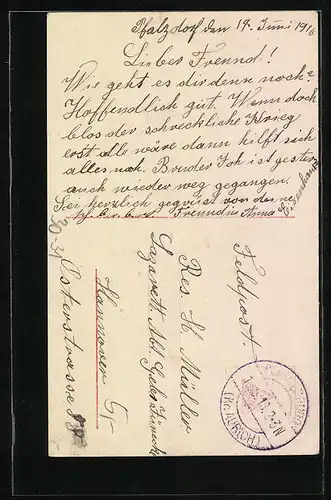 Pfalzdorf den 14. Juni 1916
Lieber Freund!
Wie geht es dir denn noch?
Hoffendlich gut. Wenn doch
blos der schreckliche Krieg
erst alle wäre dann hilft sich
alles nach. Bruder Joh ist gestern
auch wieder weg gegangen.
Sei herzlich gegrüst von deine
Freundin Anna
Feldpost.
Res. H. Müller
Lazarett. Abt.
Hannover
Osterstrasse
30-31